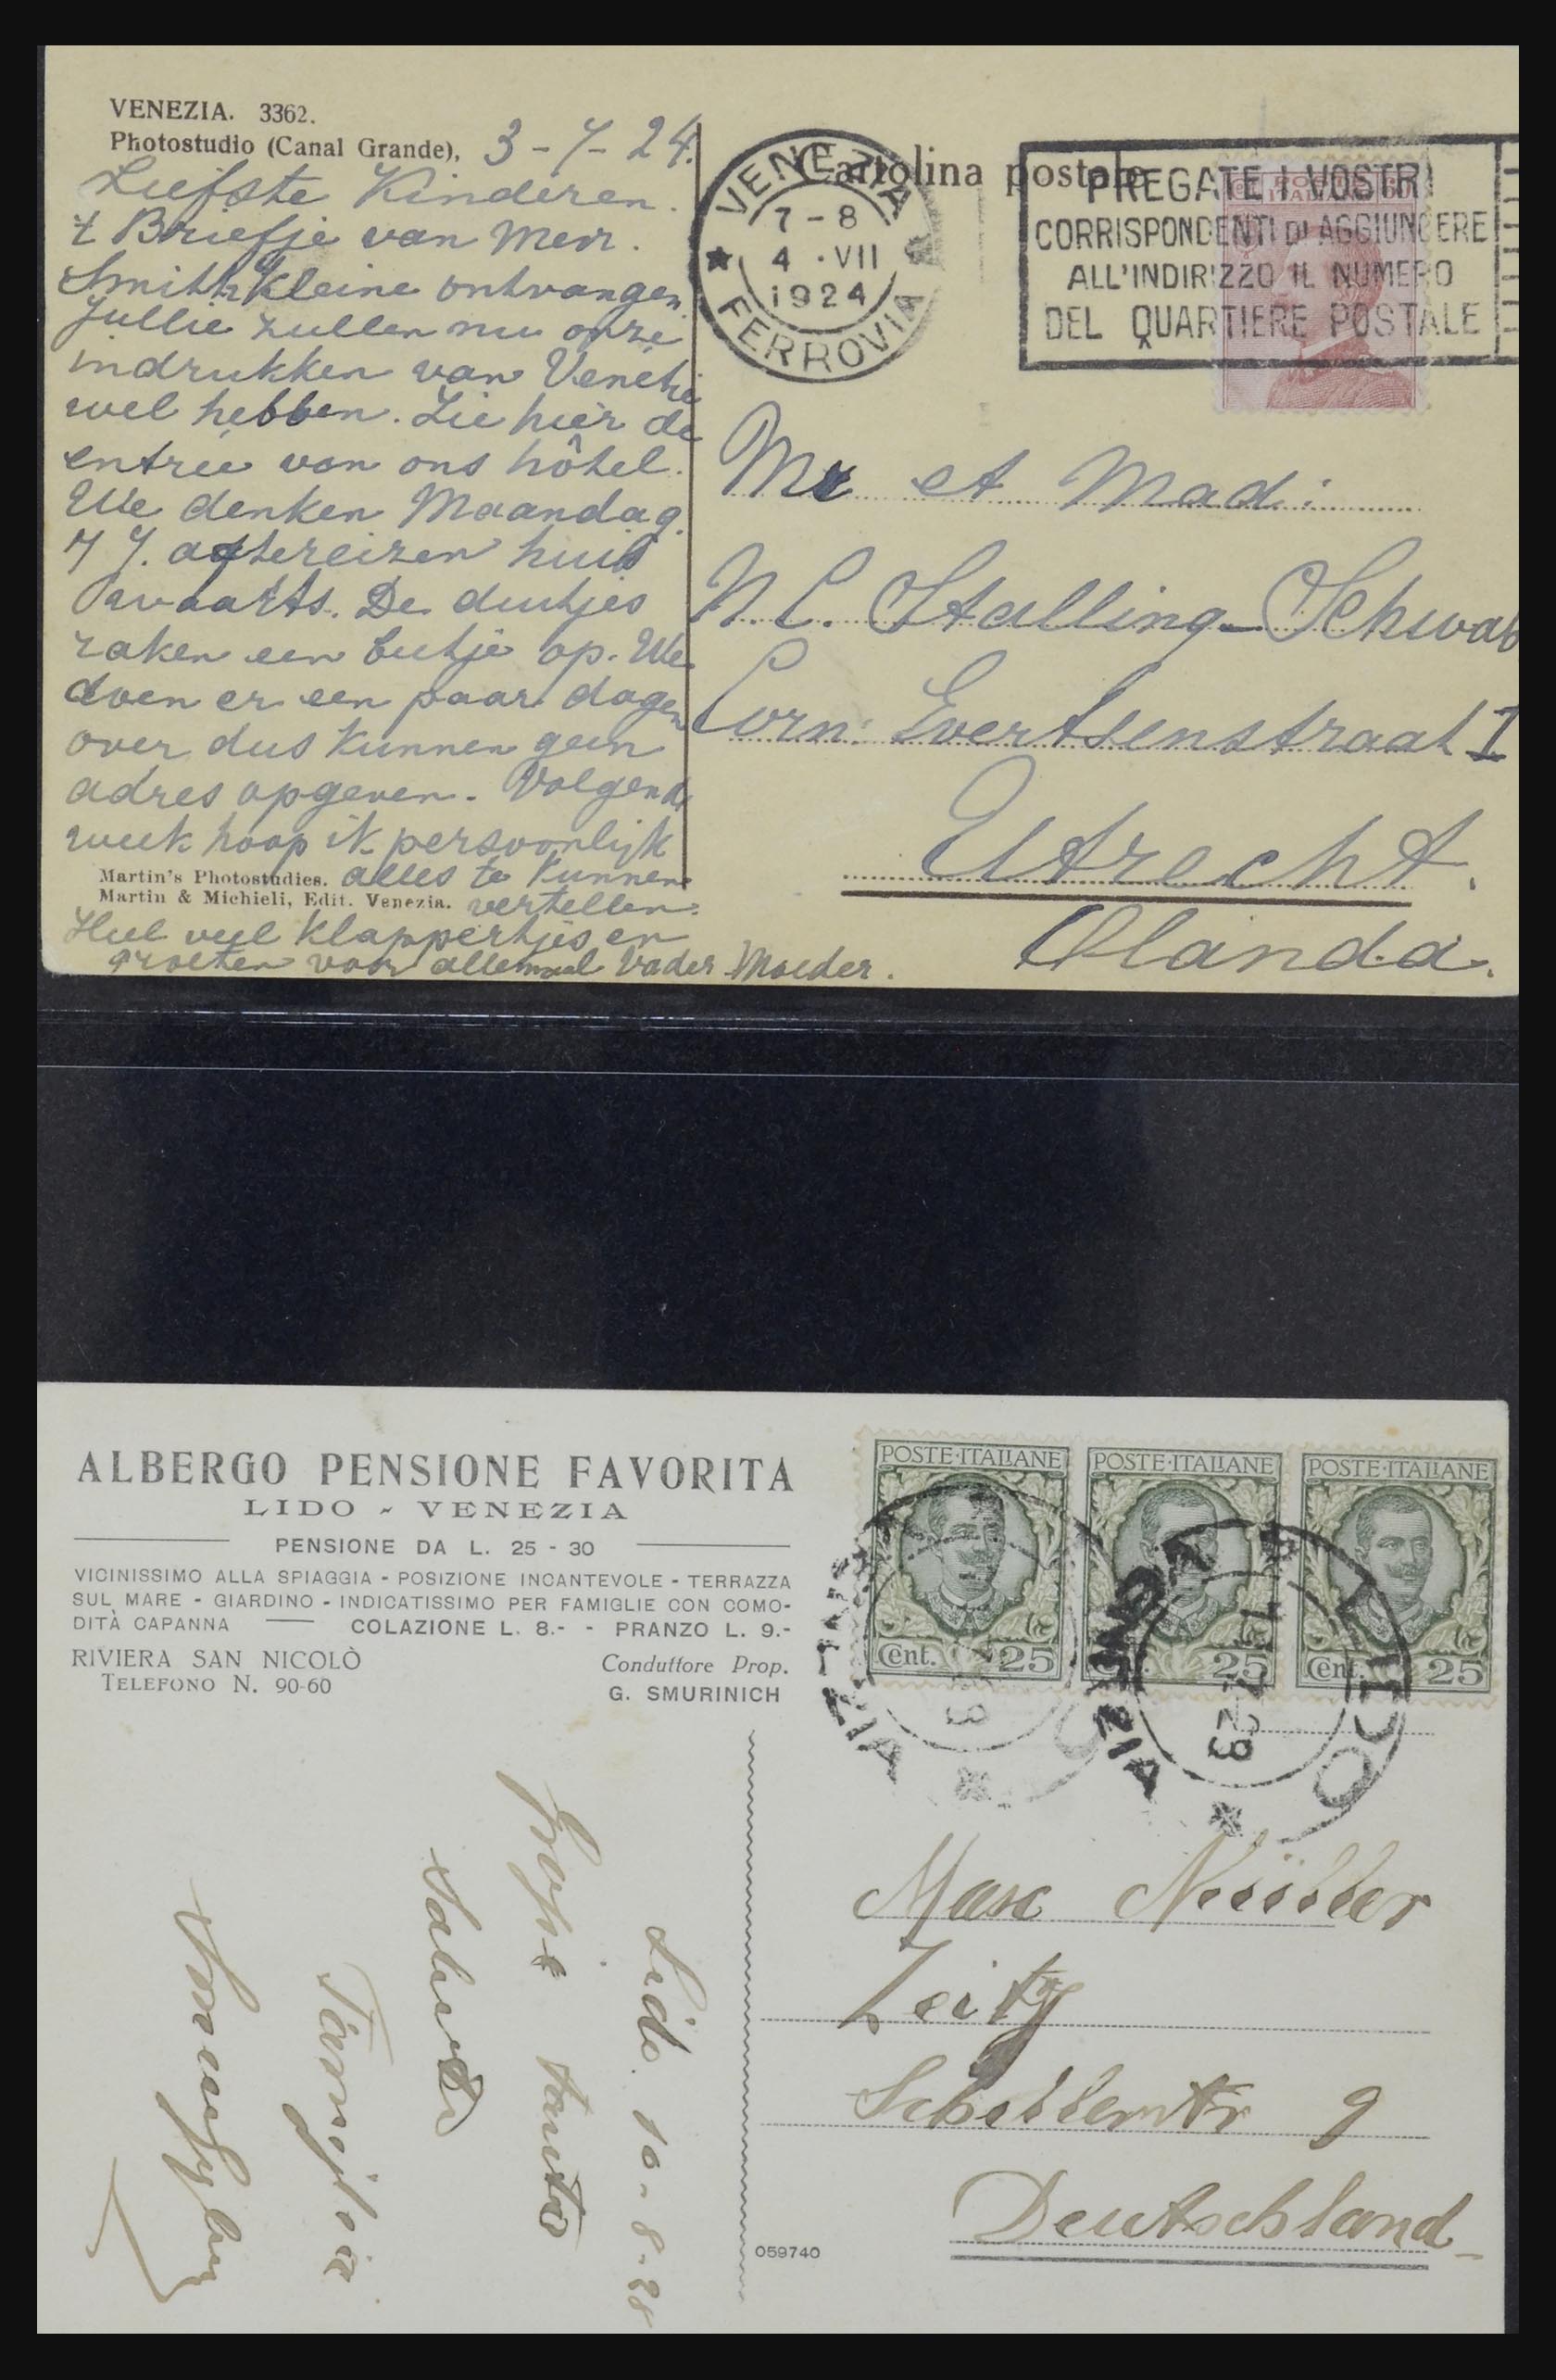 VENEZIA. 3362.
Photostudio (Canal Grande), 3-7-24.
Liefste Kinderen.
't Briefje van Mevr.
Smith Kleine ontvangen
Jullie zullen nu onze
indrukken van Venetie
wel hebben. Zie hier de
entrée van ons hôtel.
We denken Maandag
7 J. af te reizen huis
waarts. De duitjes
raken een beetje op. We
doen er een paar dagen
over dus kunnen geen
adres opgeven. Volgende
week hoop ik persoonlijk
Martin's Photostudies. alles te kunnen
Martin & Michieli, Edit. Venezia. vertellen.
Heel veel klappertjes en
groeten voor allemaal Vader Moeder.
Cartolina postale
VENEZIA
7-8
4 · VII
1924
FERROVIA
PREGATE I VOSTRI
CORRISPONDENTI DI AGGIUNGERE
ALL'INDIRIZZO IL NUMERO
DEL QUARTIERE POSTALE
Mr et Mad:
N.C. Stalling-Schwab
Corn: Evertsenstraat 1
Utrecht.
Olanda.
ALBERGO PENSIONE FAVORITA
LIDO - VENEZIA
PENSIONE DA L. 25 - 30
VICINISSIMO ALLA SPIAGGIA - POSIZIONE INCANTEVOLE - TERRAZZA
SUL MARE - GIARDINO - INDICATISSIMO PER FAMIGLIE CON COMO-
DITÀ CAPANNA COLAZIONE L. 8.- - PRANZO L. 9.-
RIVIERA SAN NICOLÒ
TELEFONO N. 90-60
Conduttore Prop.
G. SMURINICH
POSTE·ITALIANE
Cent. 25
POSTE·ITALIANE
25
POSTE·ITALIANE
Cent. 25
LIDO
VENEZIA
Lido 10-8-28
tanto
Saluti
Famiglia
Max Müller
Zeitz
9
Deutschland
059740